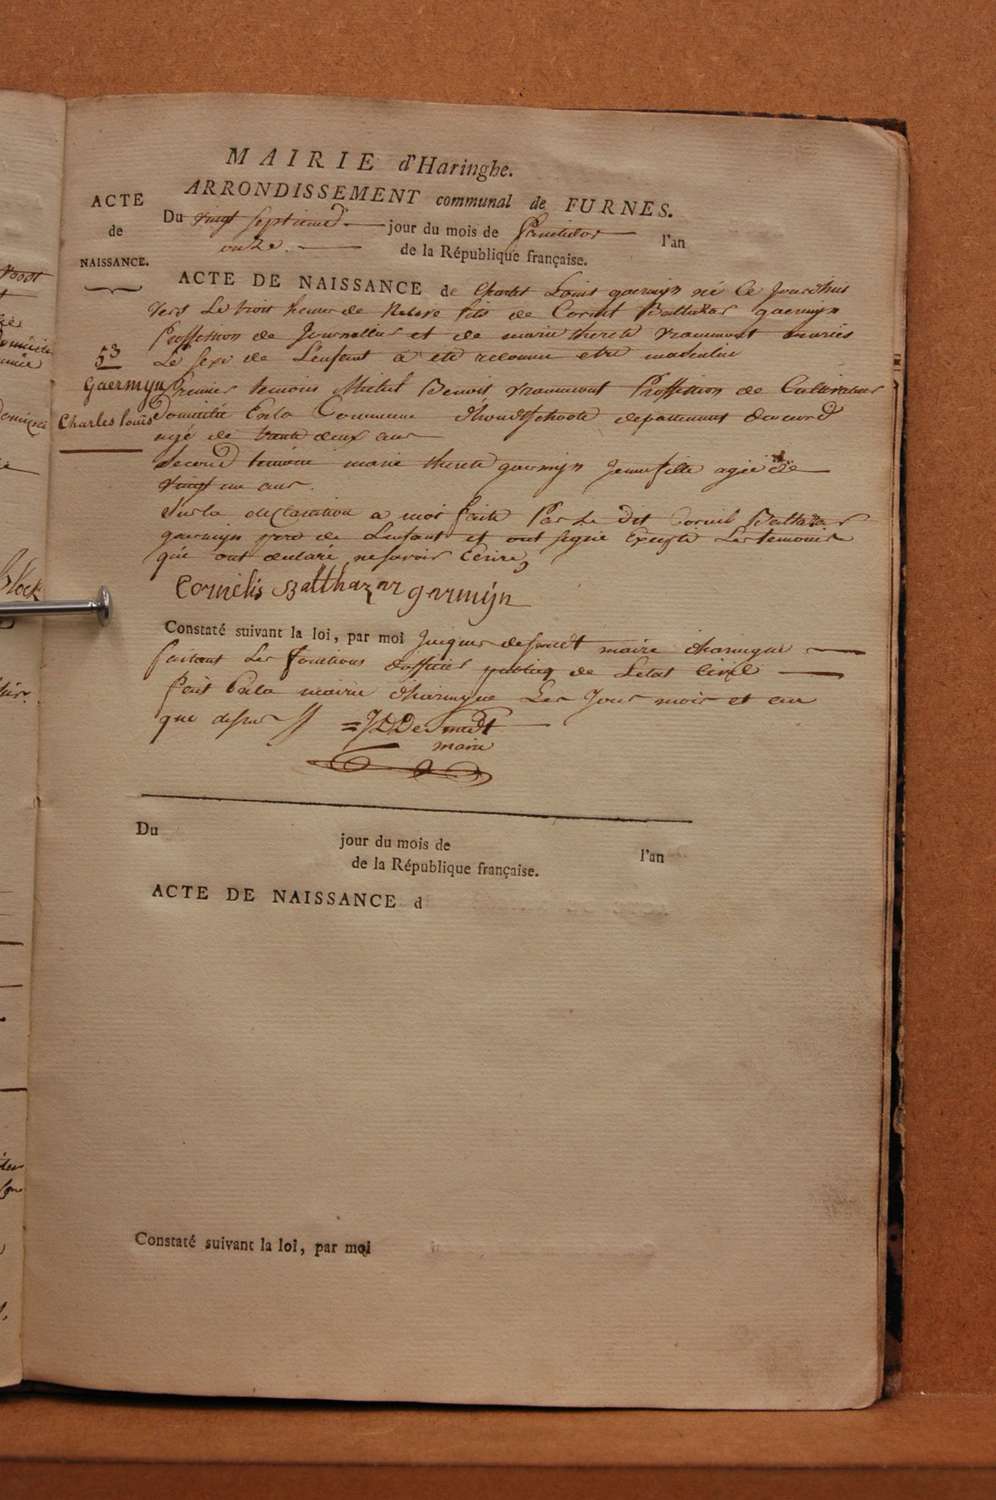 MAIRIE d'Haringhe.
ARRONDISSEMENT communal de FURNES.
ACTE
de
NAISSANCE.
Du vingt septieme jour du mois de l'an
onze. de la République française.
ACTE DE NAISSANCE de Charles Louis gaermijn né Ce Jourdhui
vers Le trois heure de Releve fils de Corneil Balthazar gaermijn
Proffession de Journallier et de marie therese vrammout mariés
Le sexe de L'enfant a ete reconnu etre masculin
53
Gaermijn
Charles louis
Premier temoin Michel Benoit vrammout Proffession de Cultivateur
Domicilié En la Commune d'hondtschoote departement du nord
agé de trente deux ans
Second temoin marie therese gaermijn Jeune fille agée de
vingt un ans.
Sur la declaration a moi faite Par Le Dit Corneil Baltazar
gaermijn pere de L'enfant et ont signé Excepté Les temoins
que ont declaré ne savoir Ecrire
Cornelis Balthazar garmijn
Constaté suivant la loi, par moi Jacques desmedt maire d'haringhe
faisant Les fonctions d'officier publicq de L'etat Civil
fait En la mairie d'haringhe Les Jour mois et an
que dessus
JDDesmedt
maire
Du jour du mois de l'an
de la République française.
ACTE DE NAISSANCE d
Constaté suivant la loi, par moi